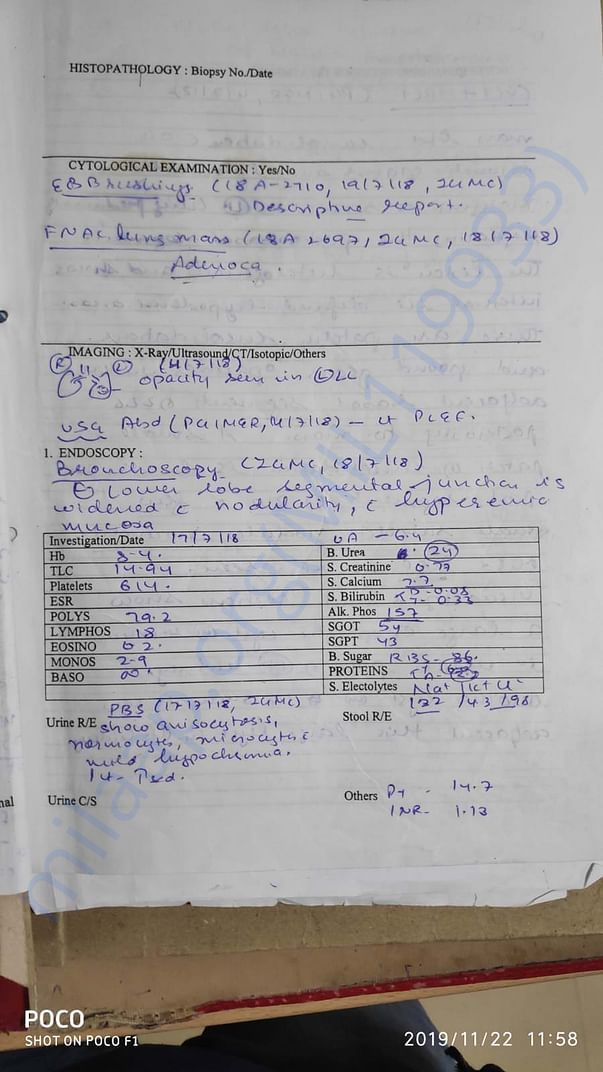 HISTOPATHOLOGY : Biopsy No./Date
CYTOLOGICAL EXAMINATION : Yes/No
EB Brushings (18A-2710, 19/7/18, ZGMC)
Descriptive report.
FNAC lung mass (18A 2697, ZGMC, 18/7/18)
Adenoca.
IMAGING : X-Ray/Ultrasound/CT/Isotopic/Others
opacity seen in LLL
USG Abd (PGIMER,
1. ENDOSCOPY :
Bronchoscopy (ZGMC, 18/7/18)
Lower lobe segmental junction is
widened c nodularity, c hyperemic
mucosa
Investigation/Date 17/7/18 UA - 6.4
Hb 8.4. B. Urea (24)
TLC 14.94 S. Creatinine 0.77
Platelets 614. S. Calcium 7.7
ESR S. Bilirubin
POLYS 79.2 Alk. Phos 157
LYMPHOS 18 SGOT 54
EOSINO 02. SGPT 43
MONOS 2.9 B. Sugar RBS - 86.
BASO PROTEINS
S. Electolytes Na+ / K+ / Cl-
PBS (17/7/18, ZGMC)
Urine R/E show anisocytosis, Stool R/E
normocytes, microcytes c
mild hypochromia.
Urine C/S Others Pt - 14.7
INR - 1.13
nal
mila
.org(MILL119933)
POCO
SHOT ON POCO F1
2019/11/22 11:58